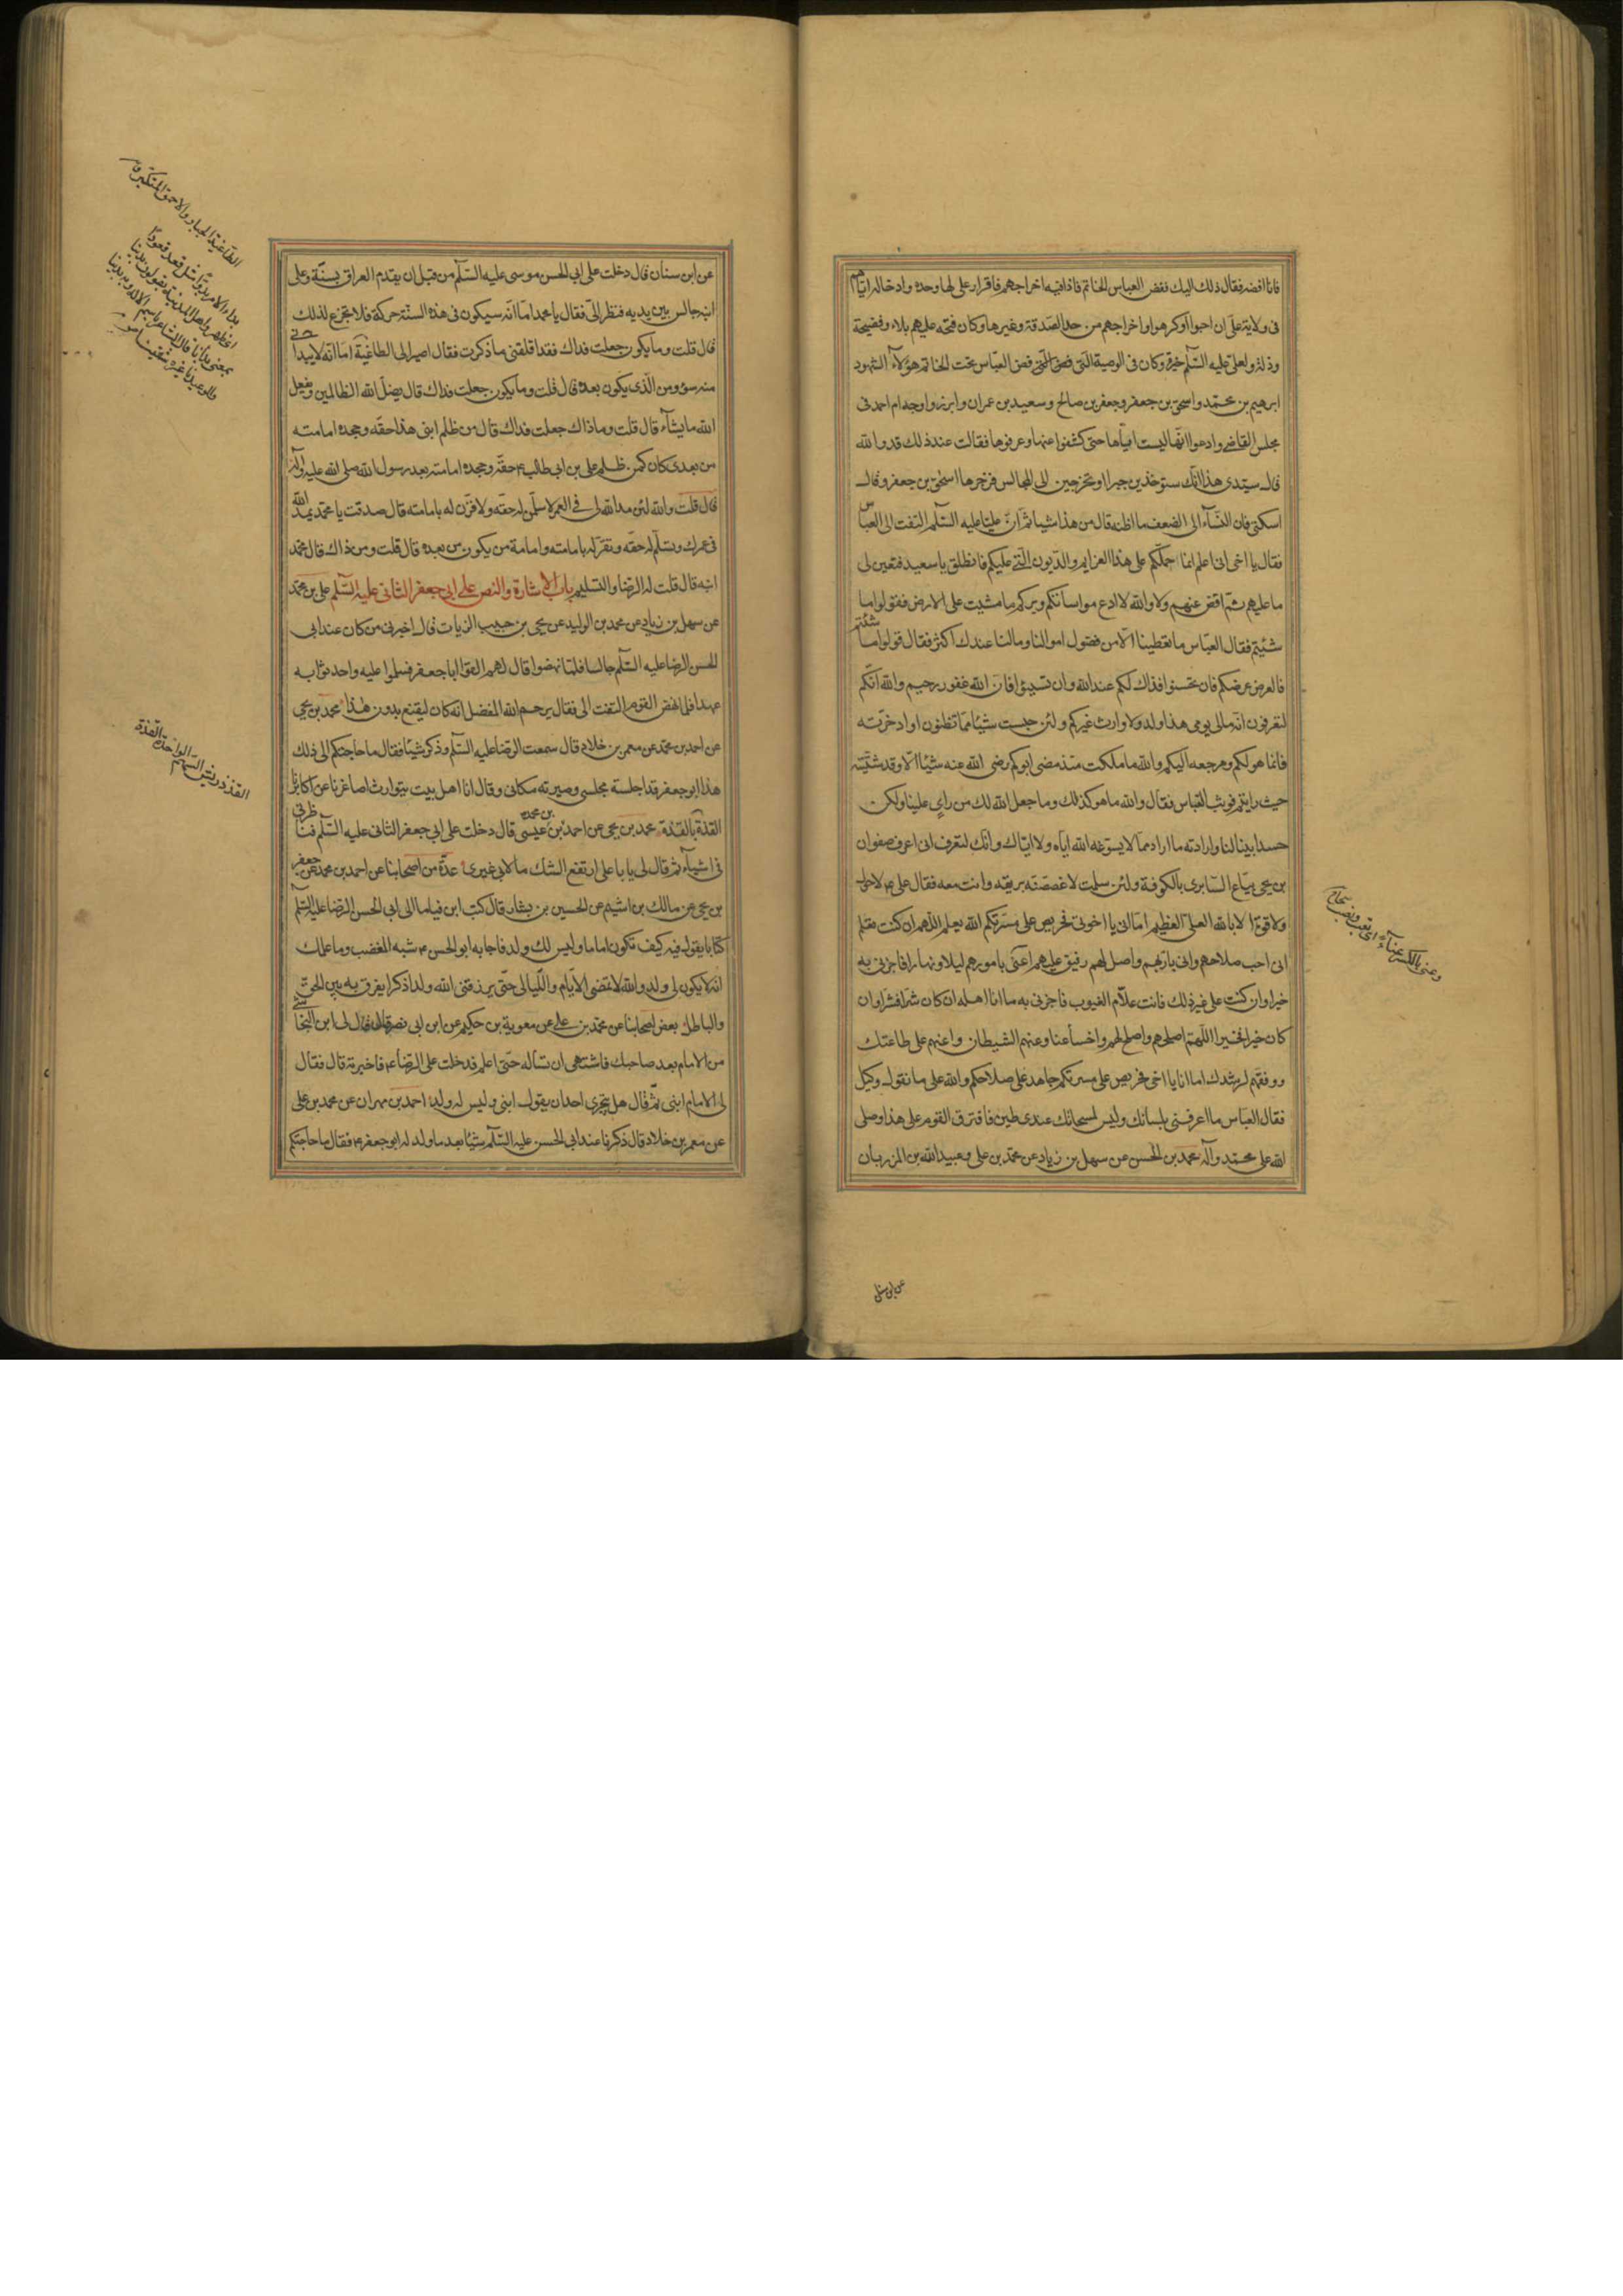 فانا افضه فقال ذلك اليك ففض العباس الخاتم فاذا فيه اخراجهم فاقرار على لها وحده وادخاله اياهم
فى ولاية على ان احبوا او كرهوا واخراجهم من حد الصدقة وغيرها وكان فتحه عليهم بلاء وفضيحة
وذلة ولعلى عليه السّلم خيرة وكان فى الوصية التى فض العباس تحت الخاتم هؤلاء الشهود
ابرهيم بن محمد واسحق بن جعفر وجعفر بن صالح وسعيد بن عمران وابرزوا وجه ام احمد فى
مجلس القاضى وادعوا انها ليست اياها حتى كشفوا عنها وعرفوها فقالت عند ذلك قد والله
قال سيدى هذا انك ستوخذين جبرا وتخرجين الى المجالس فزجرها اسحق بن جعفر وقال
اسكتى فان النسآء الى الضعف ما اظنه قال من هذا شيئا ثم ان عليا عليه السّلم التفت الى العباس
فقال يا اخى انى اعلم انما حملكم على هذا العزايم والديون التى عليكم فانطلق يا سعيد فتعين لى
ما عليهم ثم اقض عنهم ولا والله لا ادع مواساتكم وبركم ما مشيت على الارض فقولوا ما
شئتم فقال العباس ما تعطينا الا من فضول اموالنا وما لنا عندك اكثر فقال قولوا ما شئتم
فالعرض عرضكم فان تحسنوا فذاك لكم عند الله وان تسيئوا فان الله غفور رحيم والله انكم
لتعرفون انه مالى يومى هذا ولد ولا وارث غيركم ولئن حبست شيئا مما تظنون او ادخرته
فانما هو لكم ومرجعه اليكم والله ما ملكت منذ مضى ابوكم رضى الله عنه شيئا الا وقد شتته
حيث رايتم فوثب العباس فقال والله ما هو كذلك وما جعل الله لك من راى علينا ولكن
حسد ابينا لنا وارادته ما اراد مما لا يسوغه الله اياه ولا اياك وانك لتعرف انى اعرف صفوان
بن يحيى بياع السابرى بالكوفة ولئن سلمت لاغصصته بريقه وانت معه فقال على ع لا حول
ولا قوة الا بالله العلى العظيم اما انى يا اخوتى فحريص على مسرتكم الله يعلم اللهم ان كنت تعلم
انى احب صلاحهم وانى بار بهم واصل لهم رفيق عليهم اعنى بامورهم ليلا ونهارا فاجزنى به
خيرا وان كنت على غير ذلك فانت علام الغيوب فاجزنى به ما انا اهله ان كان شرا فشرا وان
كان خيرا فخيرا اللهم اصلحهم واصلح لهم واخسأ عنا وعنهم الشيطان واعنهم على طاعتك
ووفقهم لرشدك اما انا يا اخى فحريص على مسرتكم جاهد على صلاحكم والله على ما نقول وكيل
فقال العباس ما اعرفنى بلسانك وليس لمسحاتك عندى طين فافترق القوم على هذا وصلى
الله على محمد وآله محمد بن الحسن عن سهل بن زياد عن محمد بن على وعبيد الله بن المرزبان
وعنى بالكسر عناءً اى تعب ونصب صحاح
عن ابن سنان
عن ابن سنان قال دخلت على ابى الحسن موسى عليه السّلم من قبل ان يقدم العراق بسنة وعلى
ابنه جالس بين يديه فنظر الى فقال يا محمد اما انه سيكون فى هذه السنة حركة فلا تجزع لذلك
قال قلت وما يكون جعلت فداك فقد اقلقنى ما ذكرت فقال اصير الى الطاغية اما انه لا يبدأنى
منه سوء ومن الذى يكون بعده قال قلت وما يكون جعلت فداك قال يضل الله الظالمين ويفعل
الله ما يشآء قال قلت وما ذاك جعلت فداك قال من ظلم ابنى هذا حقه وجحده امامته
من بعدى كان كمن ظلم على بن ابى طالب ع حقه وجحده امامته بعد رسول الله صلى الله عليه وآله
قال قلت والله لئن مد الله لى فى العمر لاسلمن له حقه ولاقرن له بامامته قال صدقت يا محمد يمد الله
فى عمرك وتسلم له حقه وتقر له بامامته وامامة من يكون من بعده قال قلت ومن ذاك قال محمد
ابنه قال قلت له الرضا والتسليم باب الاشارة والنص على ابى جعفر الثانى عليه السّلم على بن محمد
عن سهل بن زياد عن محمد بن الوليد عن يحيى بن حبيب الزيات قال اخبرنى من كان عند ابى
الحسن الرضا عليه السّلم جالسا فلما نهضوا قال لهم القوا ابا جعفر فسلموا عليه واحدثوا به
عهدا فلما نهض القوم التفت الى فقال يرحم الله المفضل انه كان ليقنع بدون هذا محمد بن يحيى
عن احمد بن محمد عن معمر بن خلاد قال سمعت الرضا عليه السّلم وذكر شيئا فقال ما حاجتكم الى ذلك
هذا ابو جعفر قد اجلسته مجلسى وصيرته مكانى وقال انا اهل بيت يتوارث اصاغرنا عن اكابرنا
القذة بالقذة محمد بن يحيى عن احمد بن محمد بن عيسى قال دخلت على ابى جعفر الثانى عليه السّلم فناظرنى
فى اشيآء ثم قال لى يا با على ارتفع الشك ما لابى غيرى عدة من اصحابنا عن احمد بن محمد عن جعفر
بن يحيى عن مالك بن اشيم عن الحسين بن بشار قال كتب ابن قياما الى ابى الحسن الرضا عليه السّلم
كتابا يقول فيه كيف تكون اماما وليس لك ولد فاجابه ابو الحسن ع شبه المغضب وما علمك
انه لا يكون لى ولد والله لا تمضى الايام والليالى حتى يرزقنى الله ولدا ذكرا يفرق به بين الحق
والباطل بعض اصحابنا عن محمد بن على عن معوية بن حكيم عن ابن ابى نصر قال قال لى ابن النجاشى
من الامام بعد صاحبك فاشتهى ان تسأله حتى اعلم فدخلت على الرضا ع فاخبرته قال فقال
لى الامام ابنى ثم قال هل يتجرى احد ان يقول ابنى وليس له ولد احمد بن مهران عن محمد بن على
عن معمر بن خلاد قال ذكرنا عند ابى الحسن عليه السّلم شيئا بعد ما ولد له ابو جعفر ع فقال ما حاجتكم
الطاغية الجبار والاحمق المتكبر
القذذ ريش السهم الواحدة القذة